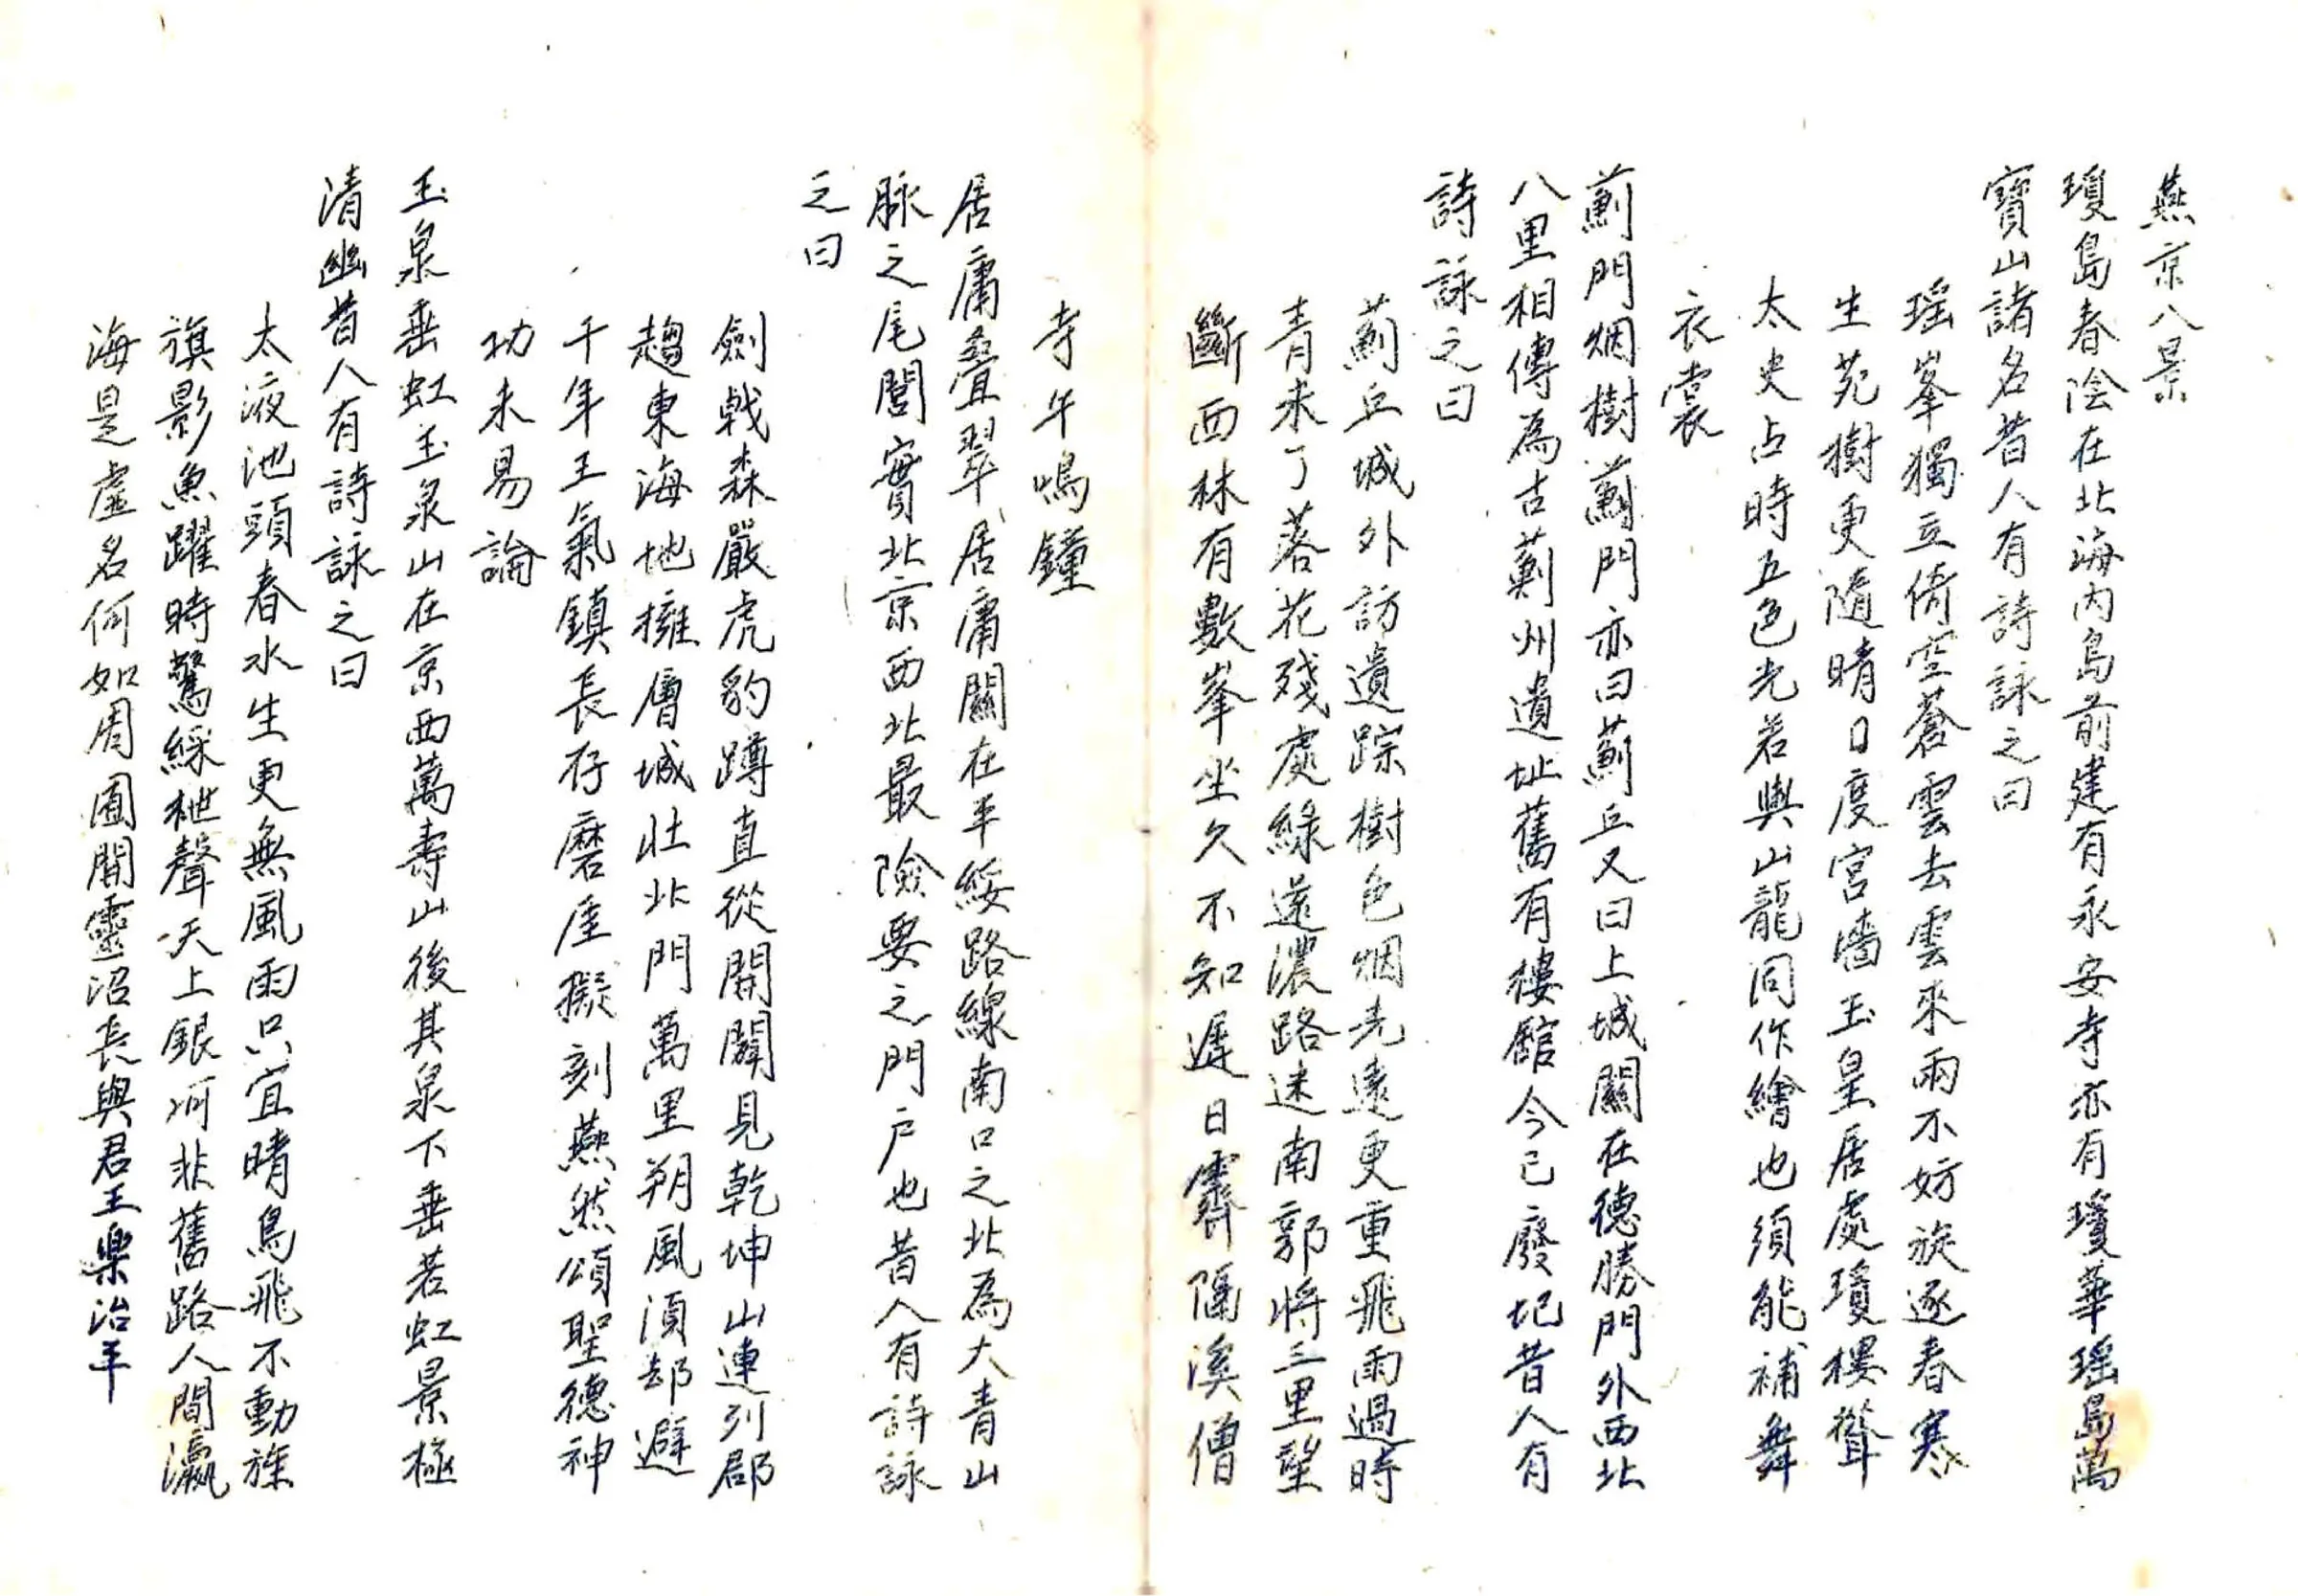 燕京八景
瓊島春陰在北海内島前建有永安寺亦有瓊華瑶島萬
寶山諸名昔人有詩詠之曰
瑶峯獨立倚空蒼雲去雲來兩不妨旋逐春寒
生苑樹更隨晴日度宮墻玉皇居處瓊樓聳
太史占時五色光若與山龍同作繪也須能補舞
衣裳
薊門烟樹薊門亦曰薊丘又曰上城關在德勝門外西北
八里相傳為古薊州遺址舊有樓館今已廢圮昔人有
詩詠之曰
薊丘城外訪遺踪樹色烟光遠更重飛雨過時
青未了落花殘處綠還濃路迷南郭將三里望
斷西林有數峯坐久不知遲日霽隔溪僧
寺午鳴鐘
居庸叠翠居庸關在平綏路線南口之北為大青山
脉之尾閭實北京西北最險要之門户也昔人有詩詠
之曰
劍戟森嚴虎豹蹲直從開闢見乾坤山連列郡
趨東海地擁層城壯北門萬里朔風須却避
千年王氣鎮長存磨崖擬刻燕然頌聖德神
功未易論
玉泉垂虹玉泉山在京西萬壽山後其泉下垂若虹景極
清幽昔人有詩詠之曰
太液池頭春水生更無風雨只宜晴鳥飛不動旌
旗影魚躍時驚綵枻聲天上銀河非舊路人間瀛
海是虛名何如周囿開靈沼長與君王樂治平